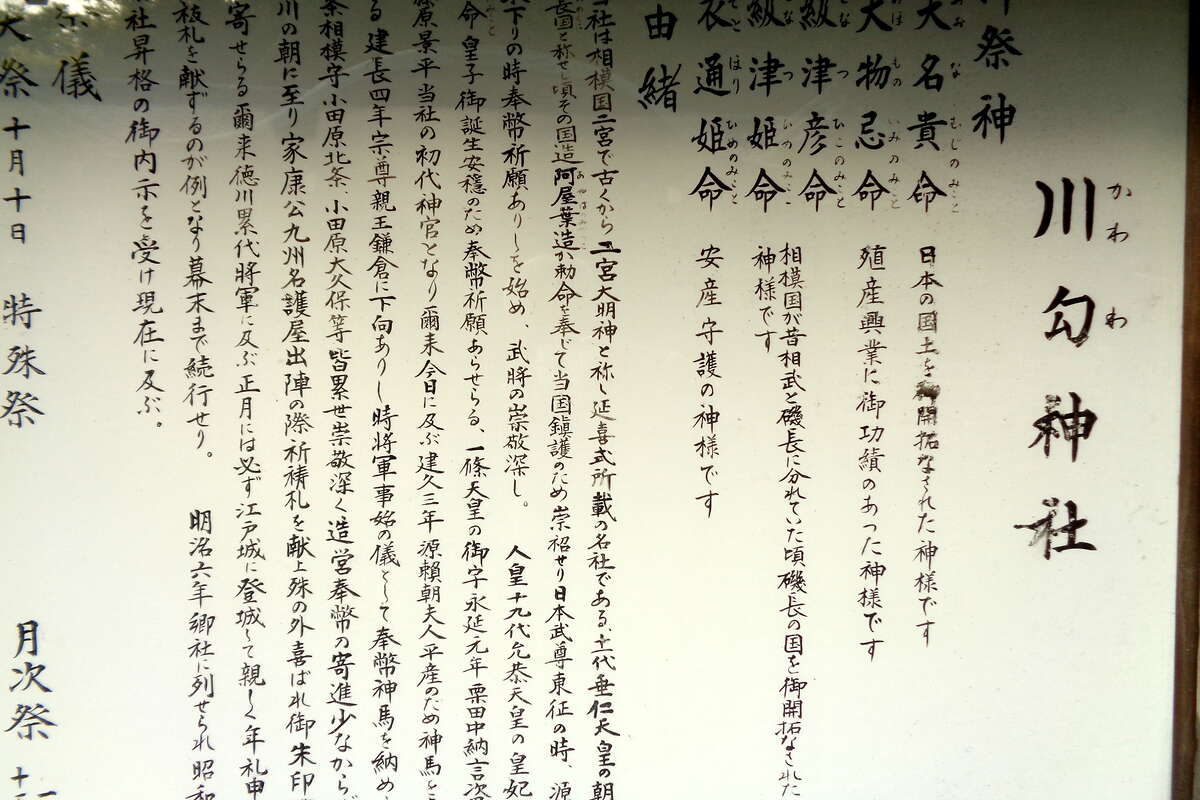 川勾神社
かわ わ
祭神
大名貴命 日本の国土を御開拓なされた神様です
おお な むじのみこと
大物忌命 殖産興業に御功績のあった神様です
おほ もの いみのみこと
級津彦命
しな つ ひこのみこと
級津姫命
しな つ ひめのみこと
相模国が昔相武と磯長に分れていた頃磯長の国を御開拓なされた
神様です
衣通姫命 安産守護の神様です
そ とほり ひめのみこと
由緒
当社は相模国二宮で古くから二宮大明神と称し延喜式所載の名社である、十一代垂仁天皇の朝
長国と称せし頃その国造阿屋葉造が勅命を奉じて当国鎮護のため崇祀せり日本武尊東征の時、源
下りの時奉幣祈願ありしを始め、武将の崇敬深し。 人皇十九代允恭天皇の皇妃
命皇子御誕生安穏のため奉幣祈願あらせらる、一條天皇の御字永延元年粟田中納言次男
原景平当社の初代神官となり爾来今日に及ぶ建久三年源頼朝夫人平産のため神馬を
る建長四年宗尊親王鎌倉に下向ありし時将軍事始の儀として奉幣神馬を納め
条相模守小田原北条、小田原大久保等皆累世崇敬深く造営奉幣の寄進少なからず
川の朝に至り家康公九州名護屋出陣の際祈祷札を献上殊の外喜ばれ御朱印
寄せらる爾来徳川累代將軍に及ぶ正月には必ず江戸城に登城して親しく年礼申
祓札を献ずるのが例となり幕末まで続行せり。 明治六年郷社に列せられ昭和
社昇格の御内示を受け現在に及ぶ。
儀
大祭 十月十日 特殊祭 月次祭